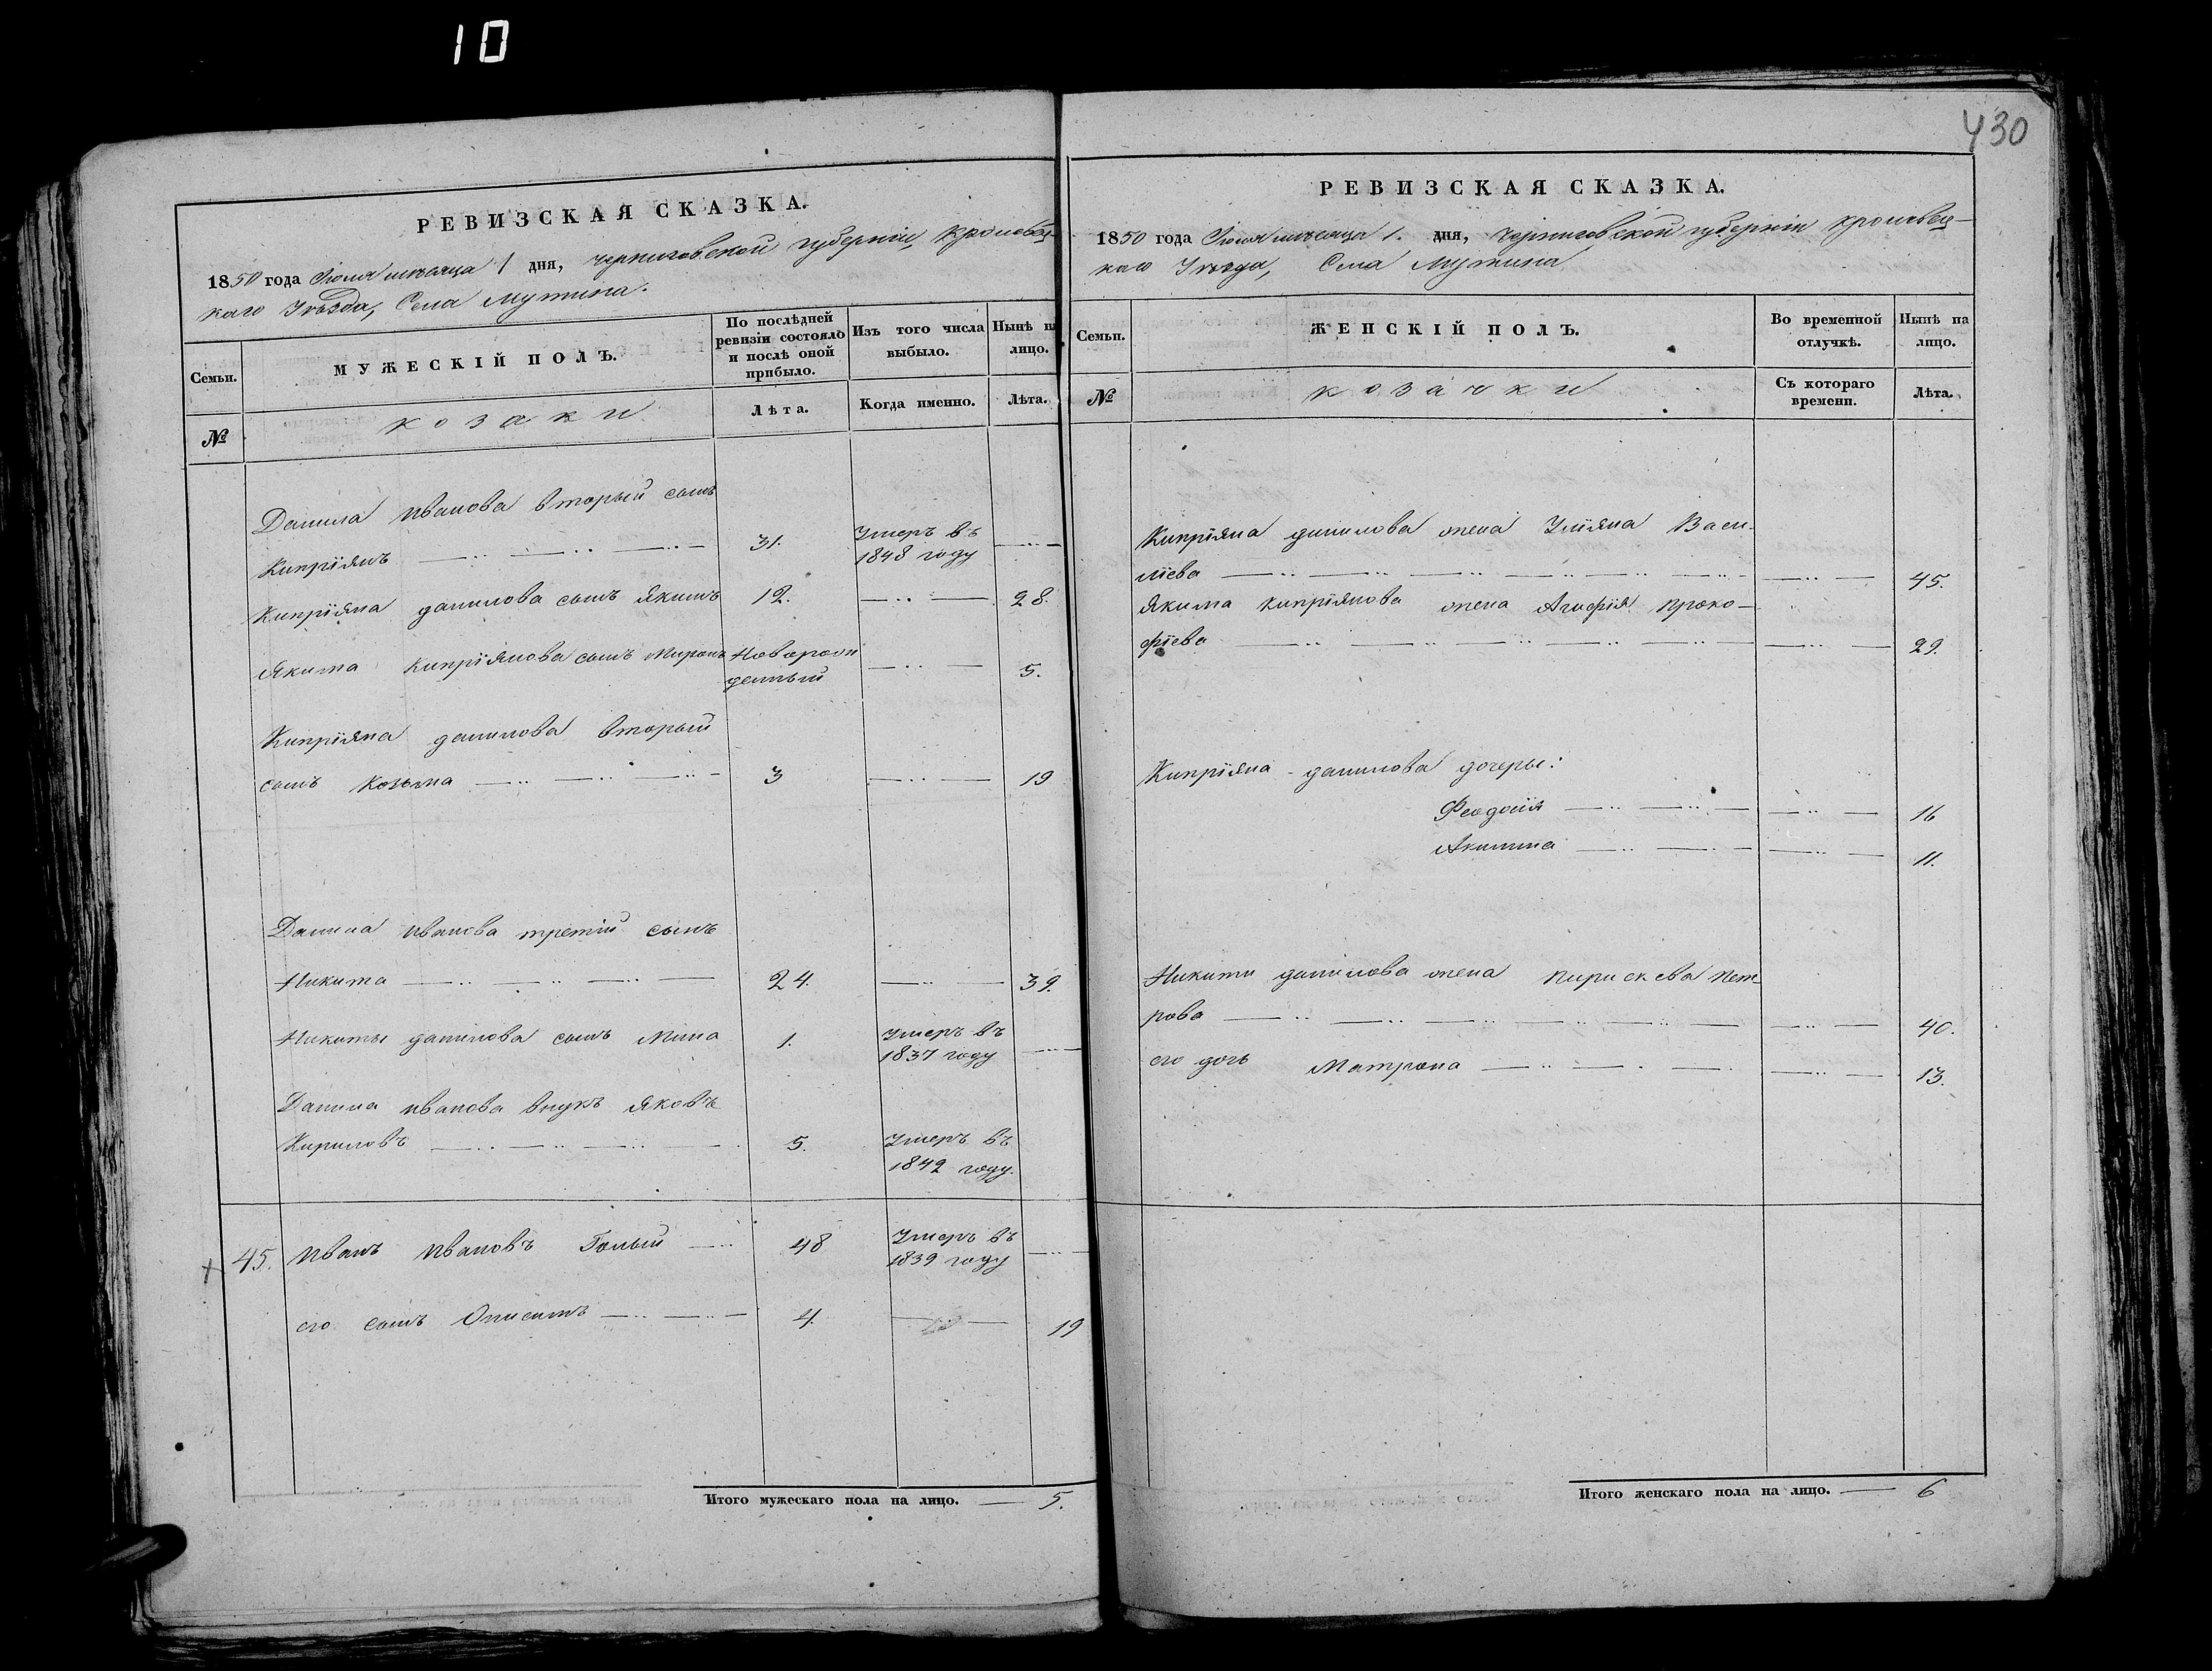 10
РЕВИЗСКАЯ СКАЗКА.
1850 года Июля мѣсяца 1 дня, Черниговской губерніи, Кролевец-
каго Уѣзда, Села Мутина.
Семьи.
МУЖЕСКІЙ ПОЛЪ.
По послѣдней
ревизіи состояло
и послѣ оной
прибыло.
Изъ того числа
выбыло.
Нынѣ на
лицо.
№
козаки
Лѣта.
Когда именно.
Лѣта.
Данила Иванова вторый сынъ
Кипріянъ 31. Умеръ въ
1848 году
Кипріяна данилова сынъ Якимъ 12. 28.
Якима Кипріянова сынъ Миронъ Новорож
денный 5.
Кипріяна данилова вторый
сынъ Козьма 3 19
Данила Иванова третій сынъ
Никита 24. 39.
Никиты данилова сынъ Мина 1. Умеръ въ
1837 году
Данила Иванова внукъ Яковъ
Кириловъ 5. Умеръ въ
1842 году.
45. Иванъ Ивановъ Голый 48 Умеръ въ
1839 году
его сынъ Онисимъ 4. 19
Итого мужескаго пола на лицо. 5.
430
РЕВИЗСКАЯ СКАЗКА.
1850 года Июля мѣсяца 1. дня, Черниговской губерніи Кролевец-
каго Уѣзда, Села Мутина
Семьи.
ЖЕНСКІЙ ПОЛЪ.
Во временной
отлучкѣ.
Нынѣ на
лицо.
№
козачки
Съ котораго
времени.
Лѣта.
Кипріяна данилова жена Уліяна Васи-
ліева 45.
Якима Кипріянова жена Агафія Проко-
фіева 29.
Кипріяна данилова дочеры:
Феодосія 16
Акилина 11.
Никиты данилова жена Параскева Пет-
рова 40.
его дочь Матрона 13.
Итого женскаго пола на лицо. 6